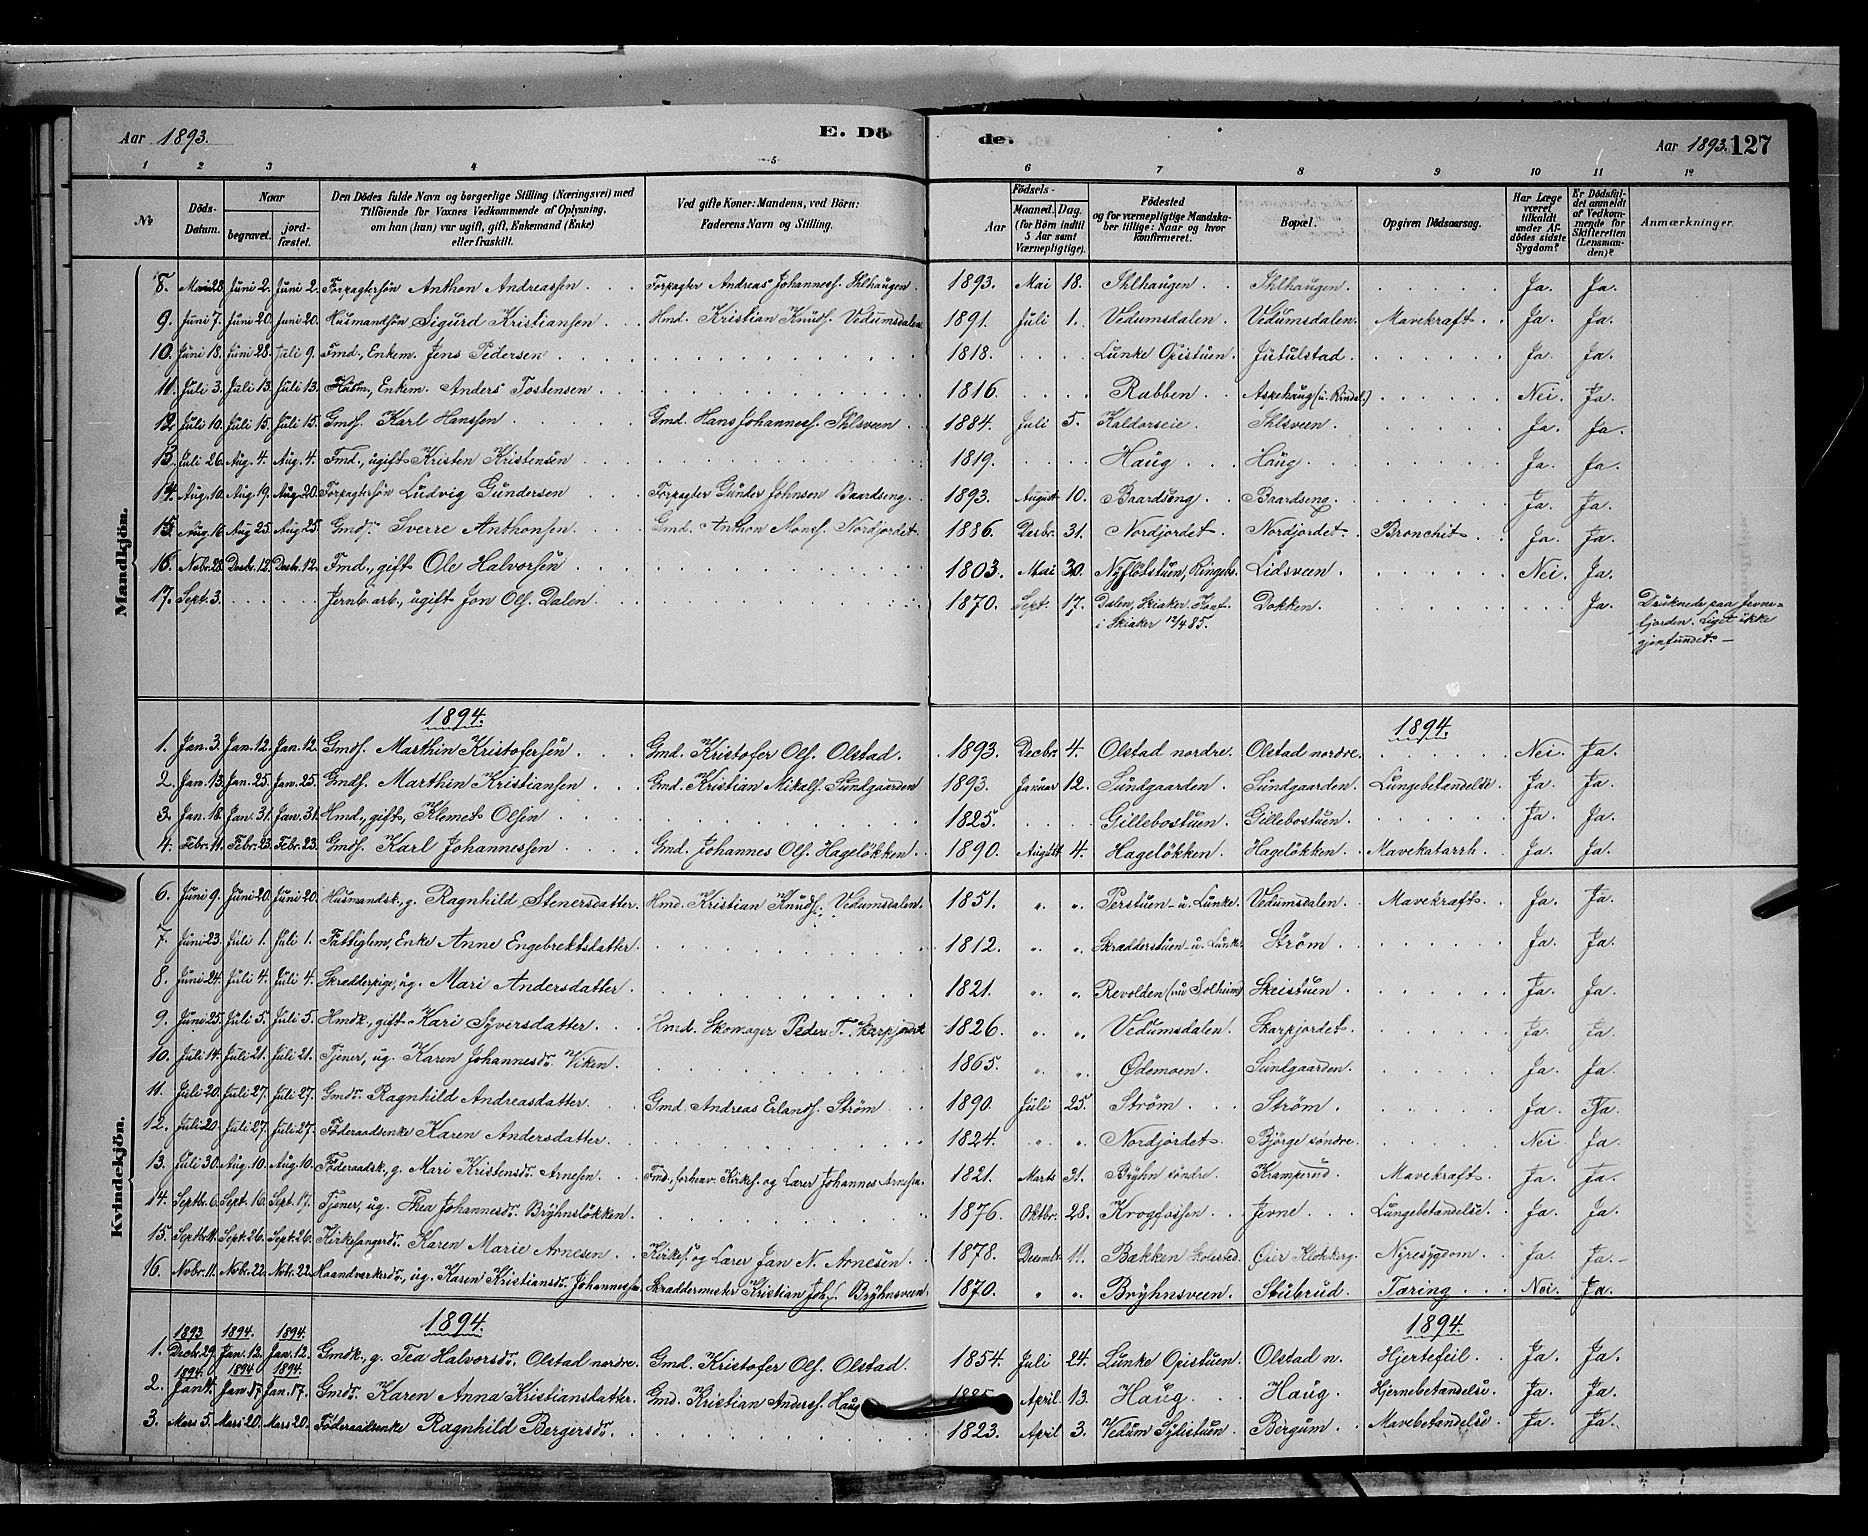 Aar 1893. E. Dö de. Aar 1893. 127
1 2 3 4 5 6 7 8 9 10 11 12
No Döds-Datum. Naar begravet. jordfæstet. Den Dödes fulde Navn og borgerlige Stilling (Næringsvei) med Tilföiende for Voxnes Vedkommende af Oplysning, om han (hun) var ugift, gift, Enkemand (Enke) eller fraskilt. Ved gifte Koner: Mandens, ved Börn: Faderens Navn og Stilling. Födsels- Aar Maaned. Dag. (for Börn indtil 5 Aar samt Værnepligtige). Födested og for værnepligtige Mandskaber tillige: Naar og hvor Konfirmeret. Bopæl. Opgiven Dödsaarsag. Har Læge været tilkaldt under Afdödes sidste Sygdom? Er Dödsfaldet anmeldt af Vedkommende for Skifteretten (Lensmanden)? Anmærkninger.
Mandkjön.
8. Mai 28. Juni 2. Juni 2. Forpagtersön Anthon Andreassen Forpagter Andreas Johanness. Ihlhaugen. 1893. Mai 18. Ihlhaugen. Ihlhaugen. Ja. Ja.
9. Juni 7. Juni 20. Juni 20. Husmandsön Sigurd Kristiansen Hmd. Kristian Knuds. Vedumsdalen. 1891. Juli 1. Vedumsdalen. Vedumsdalen. Mavekraft. Ja. Ja.
10. Juni 18. Juni 28. Juli 9. Fmd., Enkem. Jens Pedersen 1818. Lunke Opistuen. Jutulstad. Ja. Ja.
11. Juli 3. Juli 13. Juli 13. Enkem. Anders Tostensen 1816. Rabben Askehaug (u. Rindal.) Nei. Ja.
12. Juli 10. Juli 15. Juli 15. Gmds. Karl Hanssen Gmd. Hans Johanness. Ihlsveen 1884. Juli 5. Kaldorseie. Ihlsveen. Ja. Ja.
13. Juli 26. Aug. 4. Aug. 4. Fmd., ugift Kristen Kristensen 1819. Haug. Haug. Ja. Ja.
14. Aug. 10. Aug. 19. Aug. 20. Forpagtersön Ludvig Gundersen Forpagter Gunder Johnsen Baardseng. 1893. August 10. Baardseng. Baardseng. Ja. Ja.
15. Aug. 16. Aug. 25. Aug. 25. Gmds. Sverre Anthonsen Gmd. Anthon Mons. Nordjordet. 1886. Desbr. 31. Nordjordet. Nordjordet. Bronchit. Ja. Ja.
16. Nobr. 28. Desbr. 12. Desbr. 12. Fmd., gift Ole Halvorsen 1803. Mai 30. Nyflötstuen, Ringeb. Lidsveen. Nei. Ja.
17. Sept. 3. Jernb. arb., ugift Jon Ols. Dalen. 1870. Sept. 17. Dalen, Skiaker. Konf. i Skiaker 12/4 85. Dokken. Ja. Druknede paa Jevnefjorden. Liget ikke gjenfundet.
1894. 1894.
1. Jan. 3. Jan. 12. Jan. 12. Gmds. Marthin Kristofersen Gmd. Kristofer Ols. Olstad. 1893. Decbr. 4. Olstad nordre. Olstad nordre. Nei. Ja.
2. Jan. 13. Jan. 25. Jan. 25. Gmds. Marthin Kristiansen Gmd. Kristian Mikals. Sundgaarden 1893. Januar 12. Sundgaarden. Sundgaarden. Lungebetændelse. Ja. Ja.
3. Jan. 18. Jan. 31. Jan. 31. Hmd., gift, Klemet Olsen 1825. Gillebostuen. Gillebostuen. Ja. Ja.
4. Febr. 11. Febr. 23. Febr. 23. Gmds. Karl Johannessen Gmd. Johannes Ols. Hagelökken. 1890. August 4. Hagelökken. Hagelökken. Mavekatarrh. Ja. Ja.
Kvindekjön.
6. Juni 9. Juni 20. Juni 20. Husmandsk., g. Ragnhild Stenersdatter. Hmd. Kristian Knuds. Vedumsdalen. 1851. " " Perstuen u. Lunke. Vedumsdalen. Mavekraft. Ja. Ja.
7. Juni 23. Juli 1. Juli 1. Fattiglem, Enke Anne Engebrektsdatter. 1812. " " Skrædderstuen u. Lunke Ström. Ja. Ja.
8. Juni 24. Juli 4. Juli 4. Skrædderpige, ug. Mari Andersdatter. 1821. " " Revolden (nu Solheim) Skeistuen. Ja. Ja.
9. Juni 25. Juli 5. Juli 5. Hmdk., gift Kari Syversdatter. Hmd. Skomager Peder T. Skarpjordet 1826. " " Vedumsdalen. Skarpjordet. Ja. Ja.
10. Juli 14. Juli 21. Juli 21. Tjener, ug. Karen Johannesdr. Viken. 1865. " " Ødemoen. Sundgaarden. Ja. Ja.
11. Juli 20. Juli 27. Juli 27. Gmdr. Ragnhild Andreasdatter. Gmd. Andreas Erlands. Ström 1890. Juli 25. Ström. Ström. Ja. Ja.
12. Juli 20. Juli 27. Juli 27. Föderaadsenke Karen Andersdatter. 1824. " " Nordjordet. Bjørge søndre. Nei. Ja.
13. Juli 30. Aug. 10. Aug. 10. Föderaadsk., g. Mari Kristensdr. Arnesen. Fmd., forhenv. Kirkes. og Lærer Johannes Arnesen. 1821. Marts 31. Bryhn söndre. Kramperud. Mavekraft. Ja. Ja.
14. Septbr. 6. Sept. 16. Sept. 17. Tjener, ug. Thea Johannesdr. Bryhnslökken. 1876. Oktbr. 28. Krogfossen. Jevne. Lungebetændelse. Ja. Ja.
15. Septbr. 11. Sept. 26. Sept. 26. Kirkesangerdr. Karen Marie Arnesen. Kirkes. og Lærer Jan N. Arnesen. 1878. Decembr. 11. Bakken Skolested. Øier Klokkerg. Nyresygdom. Ja. Ja.
16. Nobr. 11. Nobr. 22. Nobr. 22. Haandverkersdr., ug. Karen Kristiansdr. Johannessen. Skræddermester Kristian Joh.s. Bryhnsveen. 1870. " " Bryhnsveen. Stubrud. Tæring. Nei. Ja.
1894. 1894.
1. 1893 Decbr. 29. 1894. Jan. 12. 1894. Jan. 12. Gmdk., g. Tea Halvorsdr. Olstad nordre. Gmd. Kristofer Ols. Olstad. 1854. Juli 24. Lunke Opistuen. Olstad n. Hjertefeil. Ja. Ja.
2. 1894. Jan 4. 1894 Jan. 17. 1894. Jan. 17. Gmdr. Karen Anna Kristiansdatter. Gmd. Kristian Anderss. Haug April 13. Haug. Haug. Hjernebetændelse. Ja. Ja.
3. Mars 5. Mars 20. Mars 20. Föderaadsenke Ragnhild Bergersdr. 1823. April 3. Vedum Sydistuen. Bergum. Mavebetændelse. Ja. Ja.